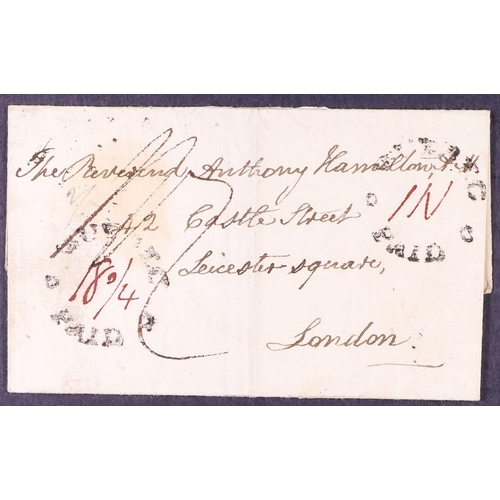 The Reverend Anthony Hamilton, A.M
42 Castle Street
Leicester square,
London.
PAID
18 0/4
IN
PAID